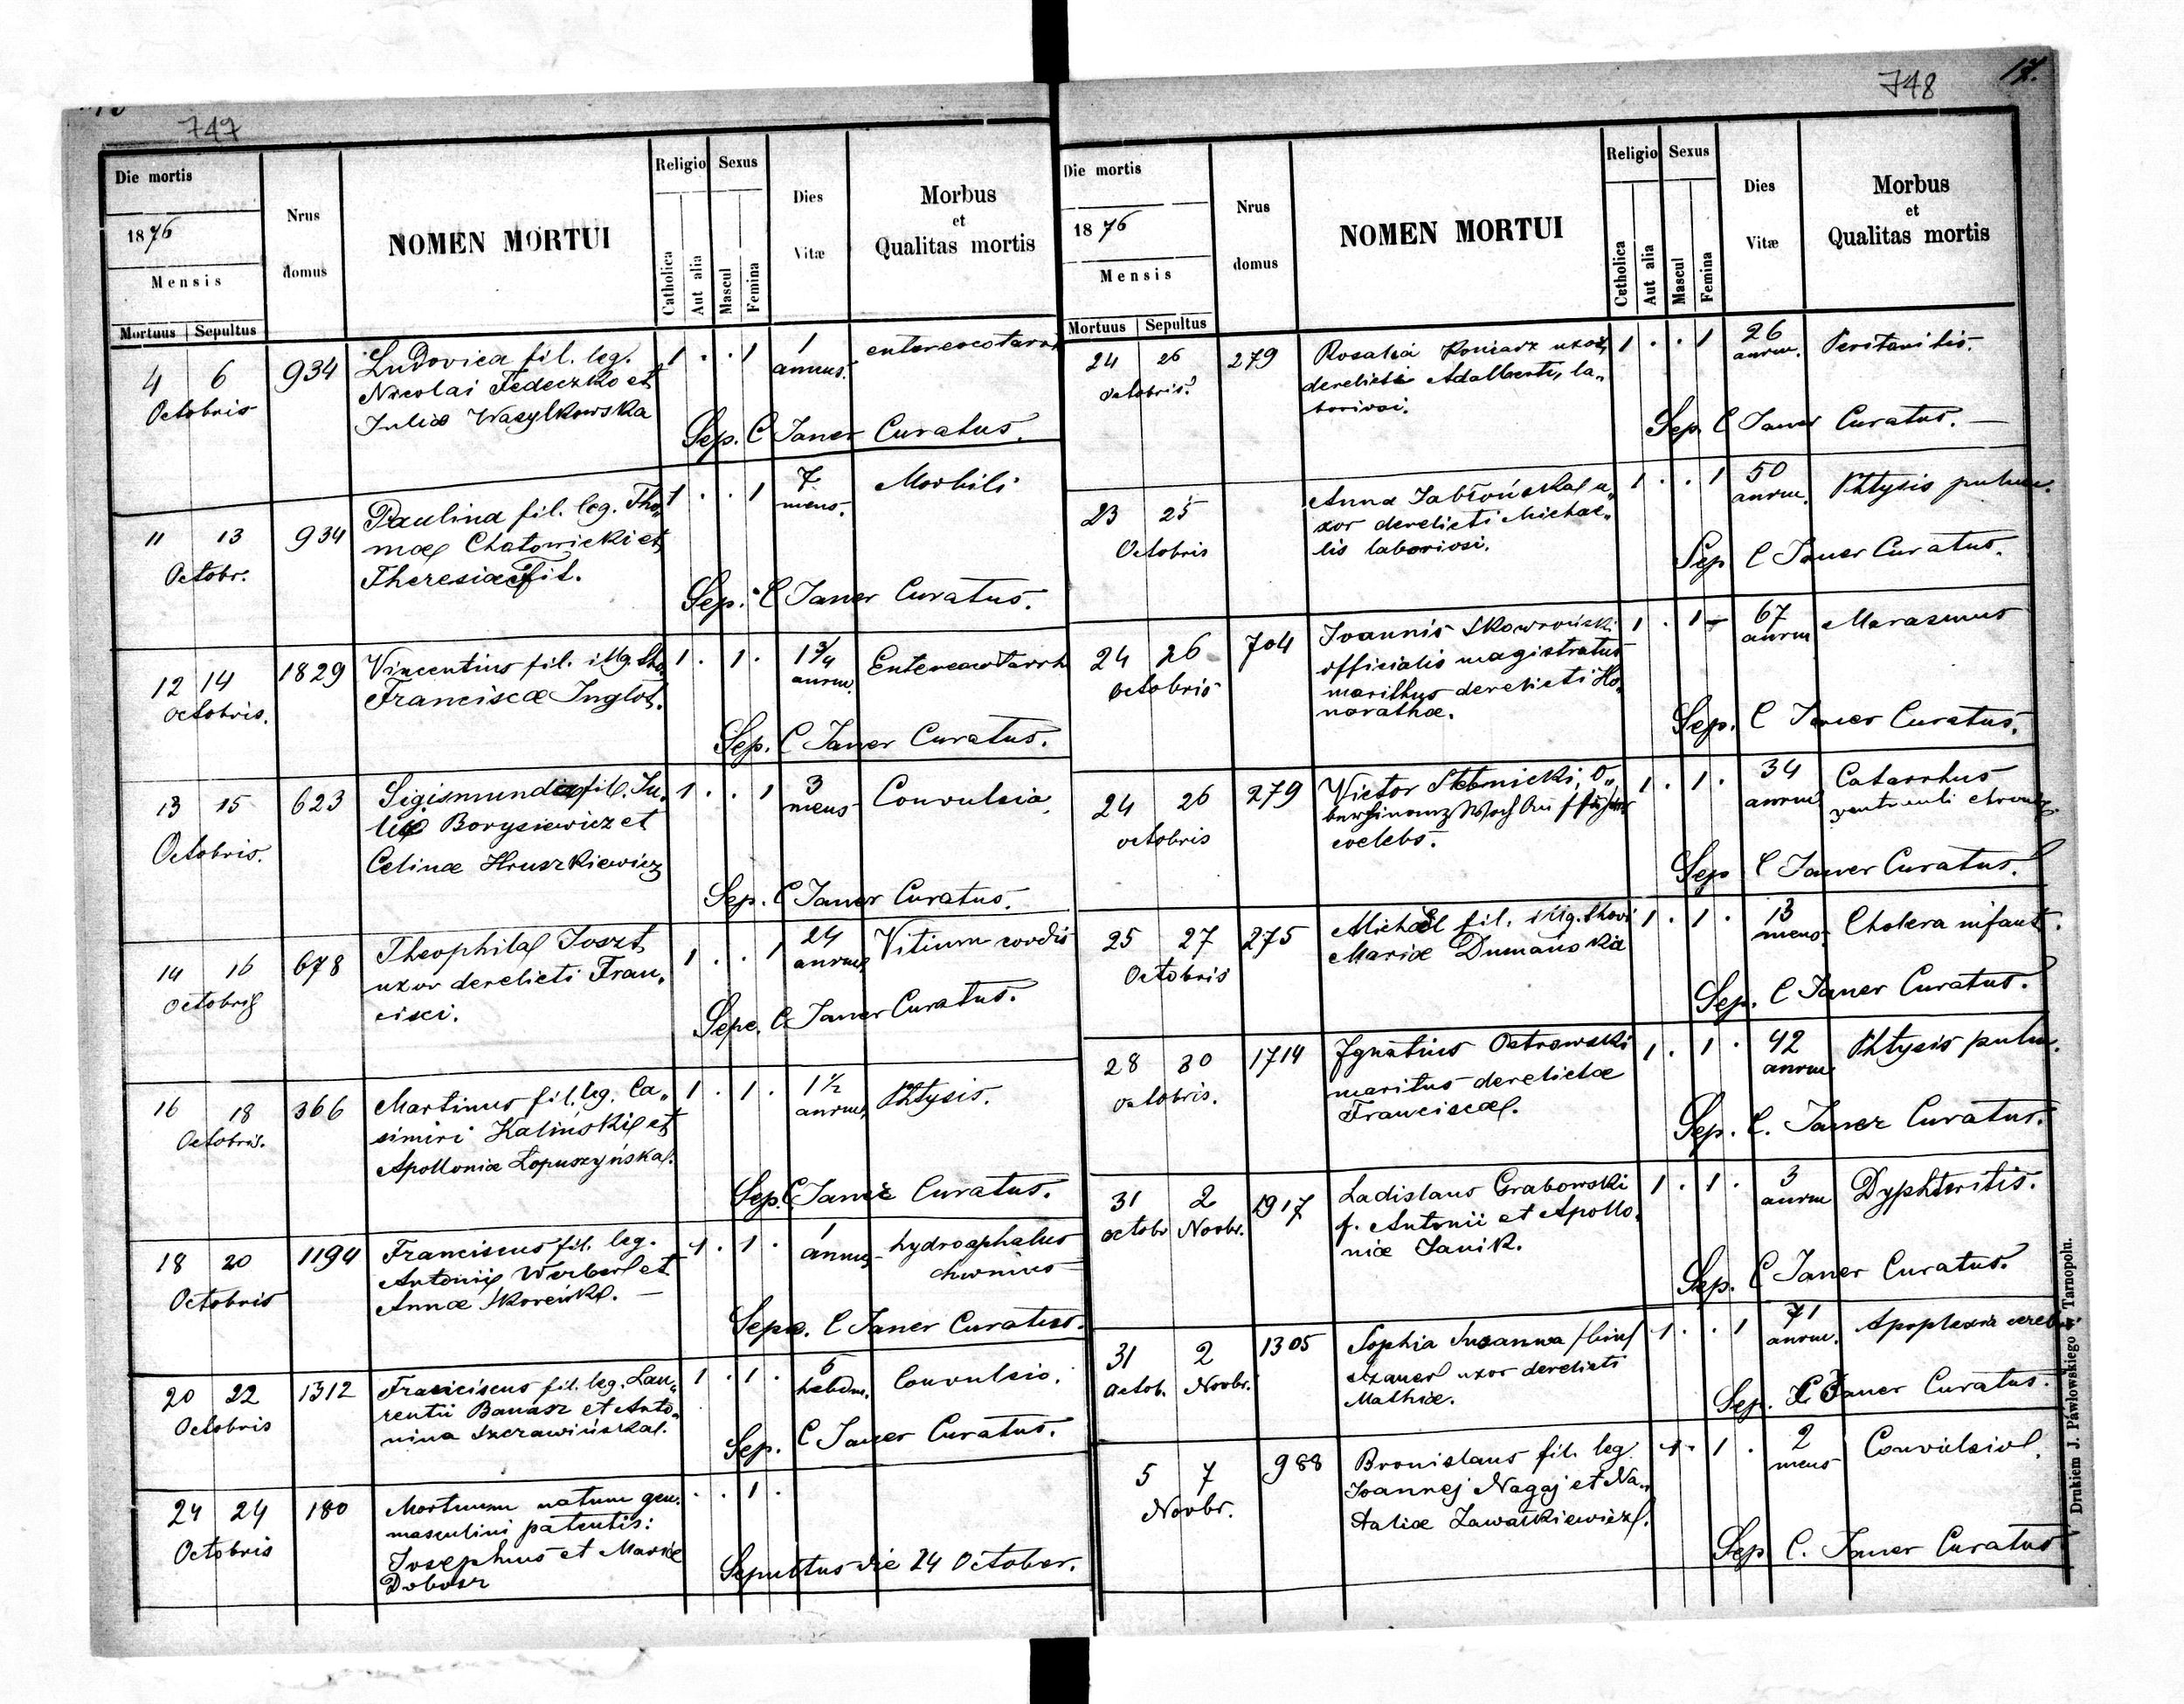 747
Die mortis
1876
Mensis
Mortuus Sepultus
Nrus domus
NOMEN MORTUI
Religio
Catholica
Aut alia
Sexus
Mascul
Femina
Dies Vitæ
Morbus
et
Qualitas mortis
4 6 934 Ludovica fil. leg. 1 . . 1 1
Octobris Nicolai Fedeczko et annus.
Juliæ Wasylkowska
Sep. C Janer Curatus.
11 13 934 Paulina fil. leg. Tho„ 1 . . 1 7 Morbili
Octobr. mæ Chatowicki et mens.
Theresiæ Fil.
Sep. C Janer Curatus.
12 14 1829 Vincentius fil. illg. 1 . 1 . 1 3/4
Octobris. Franciscæ Inglot. annor.
Sep. C Janer Curatus.
13 15 623 Sigismunda fil. Ju„ 1 . . 1 3 Convulsia
Octobris. Borysiewicz et mens
Celinæ Hruszkiewicz
Sep. C Janer Curatus.
14 16 678 Theophila Joszt 1 . . 1 24 Vitium cordis
Octobris uxor derelicti Fran„
cisci.
Sepe. C Janer Curatus.
16 18 366 Martinus fil. leg. Ca„ 1 . 1 . 1 1/2 Phtysis.
Octobris. simiri Kaliński et
Apolloniæ Łopuszyńska.
Sep. C Janer Curatus.
18 20 1194 Franciscus fil. leg. 1 . 1 . 1
Octobris Antonii Werber et annus
Annæ
Sepe. C Janer Curatus.
20 22 1312 Franciscus fil. leg. Lau„ 1 . 1 . 5 Convulsio.
Octobris rentii Banasz et Anto„ hebdm.
nina Szczawińska.
Sep. C Janer Curatus.
24 24 180 Mortuum natum gen. . . 1 .
Octobris masculini
Josephus et Mariæ
Dobosz
Sepultus die 24 October.
748 17.
Die mortis
1876
Mensis
Mortuus Sepultus
Nrus domus
NOMEN MORTUI
Religio
Catholica
Aut alia
Sexus
Mascul
Femina
Dies Vitæ
Morbus
et
Qualitas mortis
24 26 279 Rosalia Koniarz uxor 1 . . 1 26
octobris derelicti Adalberti, la„ annor.
boriosi.
Sep. C Janer Curatus. —
23 25 Anna Jabłońska u„ 1 . . 1 50 Phtysis pulm.
Octobris xor derelicti Michae„ annor.
lis laboriosi.
Sep C Janer Curatus.
24 26 704 Joannis Skowroński 1 . 1 67 Marasmus
octobris officialis magistratus annor
derelicti Ho„
norathæ.
Sep. C Janer Curatus.
24 26 279 Victor 1 . 1 . 34 Catarrhus
octobris annor ventriculi chronic.
coelebs.
Sep C Janer Curatus.
25 27 275 Michael fil. illg. 1 . 1 . 13 Cholera infant.
Octobris Mariæ Dumańska mens.
Sep. C Janer Curatus.
28 30 1714 Ignatius Ostrowski 1 . 1 . 42 Phtysis pulm.
octobris. maritus derelictæ annor
Franciscæ.
Sep. C. Janer Curatus.
31 2 1917 Ladislaus Grabowski 1 . 1 . 3 Dyphteritis.
octobr Novbr. f. Antonii et Apollo„ annor
niæ Janik.
Sep. C Janer Curatus.
31 2 1305 Sophia Susanna 1 . . 1 71 Apoplexia
Octob. Novbr. uxor derelicti annor.
Mathiæ.
Sep. C Janer Curatus.
5 7 988 Bronislaus fil. leg. 1 . 1 . 2
Novbr. Nagaj et Na„ mens
taliæ
Sep C. Janer Curatus
Drukiem J. Pawłowskiego w Tarnopolu.